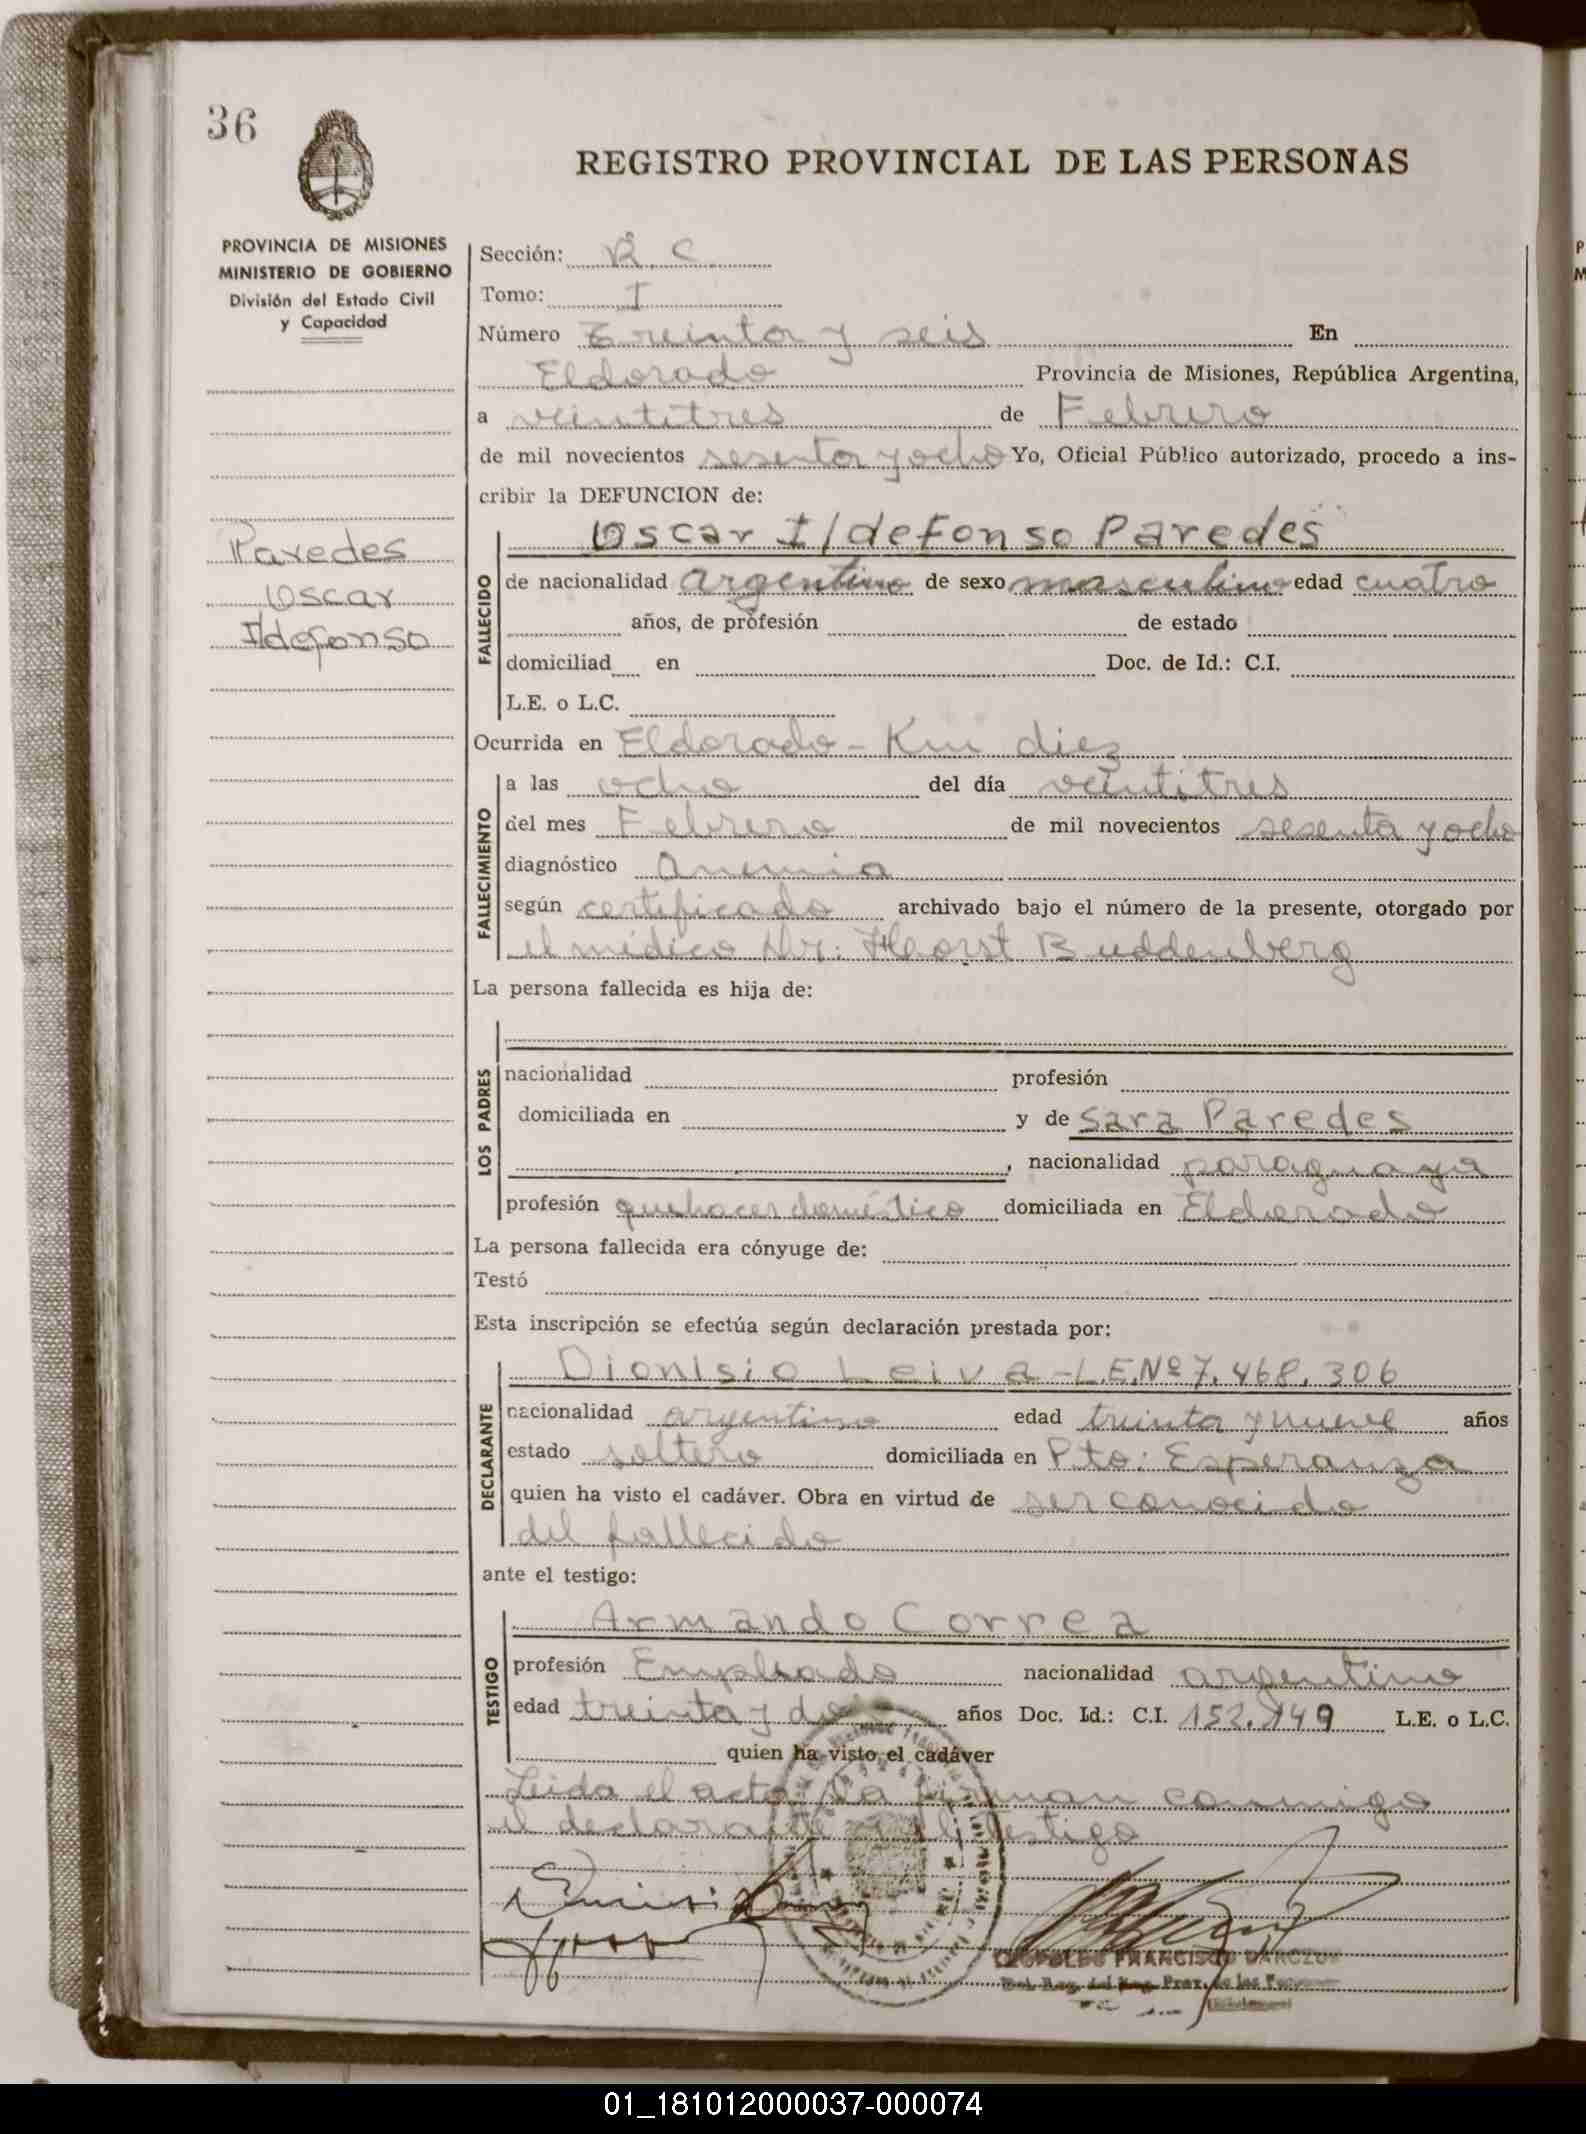 36
REGISTRO PROVINCIAL DE LAS PERSONAS
PROVINCIA DE MISIONES
MINISTERIO DE GOBIERNO
División del Estado Civil
y Capacidad
Paredes
Oscar
Ildefonso
Sección: C
Tomo: I
Número treinta y seis En
Eldorado Provincia de Misiones, República Argentina,
a veintitres de Febrero
de mil novecientos sesenta y ocho Yo, Oficial Público autorizado, procedo a ins-
cribir la DEFUNCION de:
FALLECIDO
Oscar Ildefonso Paredes
de nacionalidad argentino de sexo masculino edad cuatro
años, de profesión de estado
domiciliad en Doc. de Id.: C.I.
L.E. o L.C.
Ocurrida en Eldorado - Km diez
FALLECIMIENTO
a las ocho del día veintitres
del mes Febrero de mil novecientos sesenta y ocho
diagnóstico Anemia
según certificado archivado bajo el número de la presente, otorgado por
el médico Dr: Horst Buddenberg
La persona fallecida es hija de:
LOS PADRES
nacionalidad profesión
domiciliada en y de Sara Paredes
, nacionalidad paraguaya
profesión quehacer doméstico domiciliada en Eldorado
La persona fallecida era cónyuge de:
Testó
Esta inscripción se efectúa según declaración prestada por:
DECLARANTE
Dionisio Leiva - L.E.Nº 7.468.306
nacionalidad argentino edad treinta y nueve años
estado soltero domiciliada en Pto: Esperanza
quien ha visto el cadáver. Obra en virtud de ser conocido
del fallecido
ante el testigo:
TESTIGO
Armando Correa
profesión Empleado nacionalidad argentino
edad treinta y dos años Doc. Id.: C.I. 152.149 L.E. o L.C.
quien ha visto el cadáver
Leida el acta, la firman conmigo
el declarante y el testigo
FRANCISCO
01_181012000037-000074